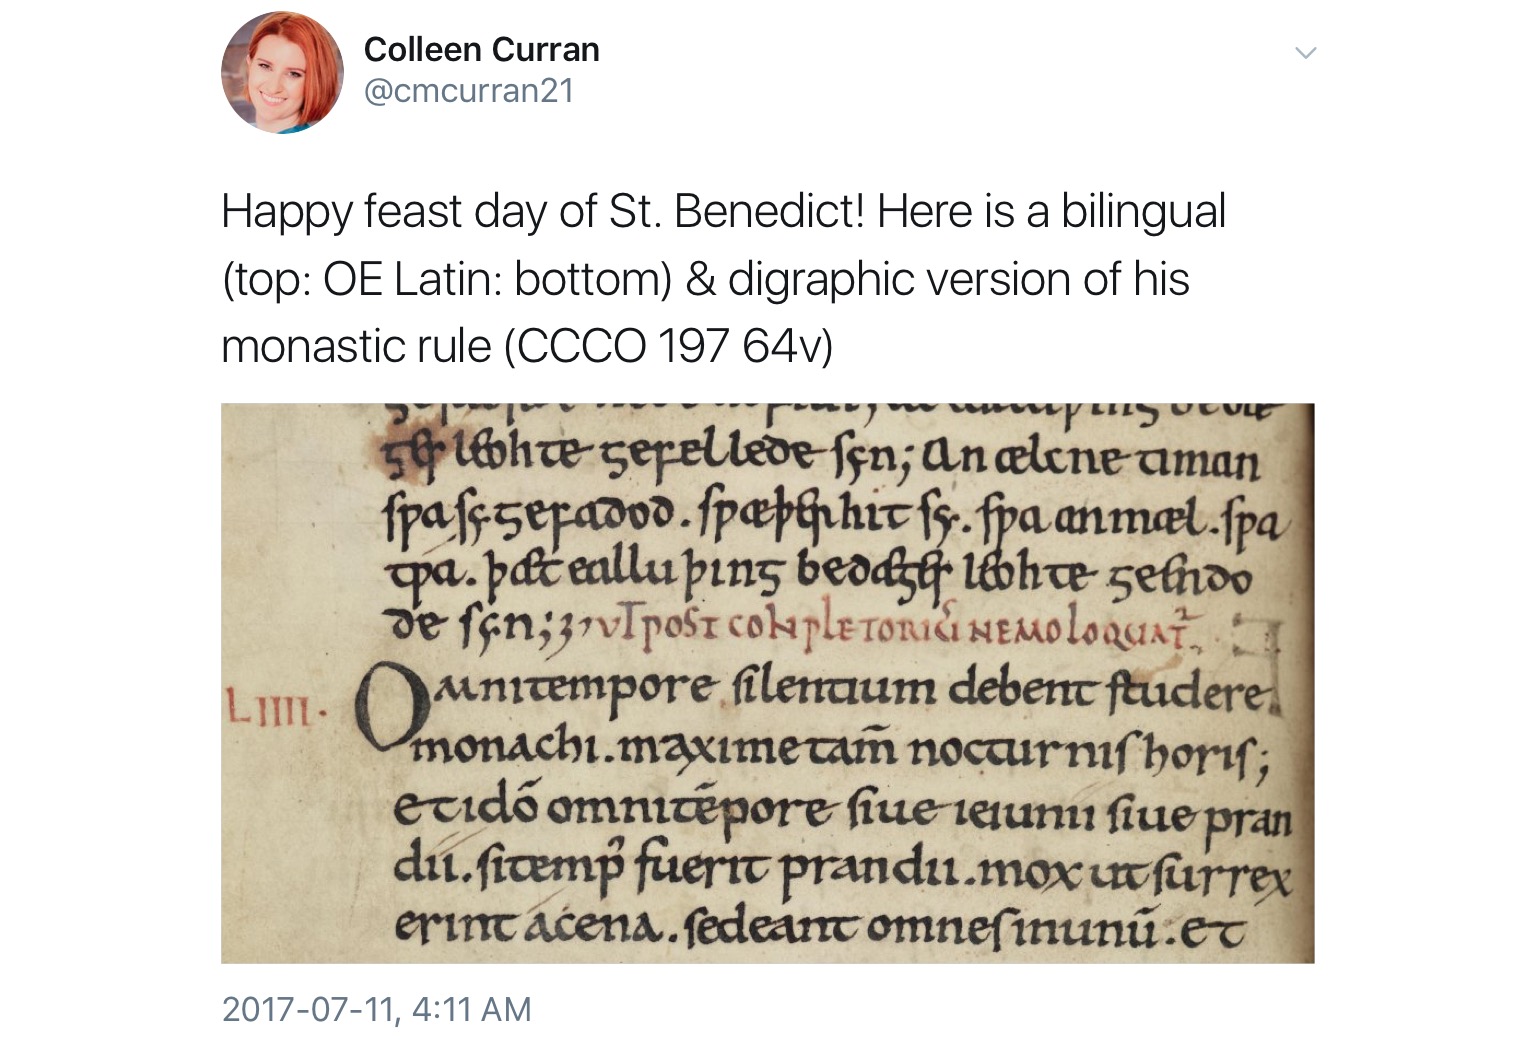 Colleen Curran
@cmcurran21
Happy feast day of St. Benedict! Here is a bilingual
(top: OE Latin: bottom) & digraphic version of his
monastic rule (CCCO 197 64v)
leohte gefellede syn; An ælcne timan
spa sy gefadod. spæþer hit sy. spa on mæl. spa
þæt eallu þing be dæges leohte geendo
de syn; uT posT coMpleToriū NEMO loquaT̄
LIIII. Omni tempore silentium debent studere
monachi. maxime tam̄ nocturnis horis;
et idō omni tēpore siue ieiunii siue pran
dii. si temp̄ fuerit prandii. mox ut surrex
erint a cena. sedeant omnes in unū. et
2017-07-11, 4:11 AM